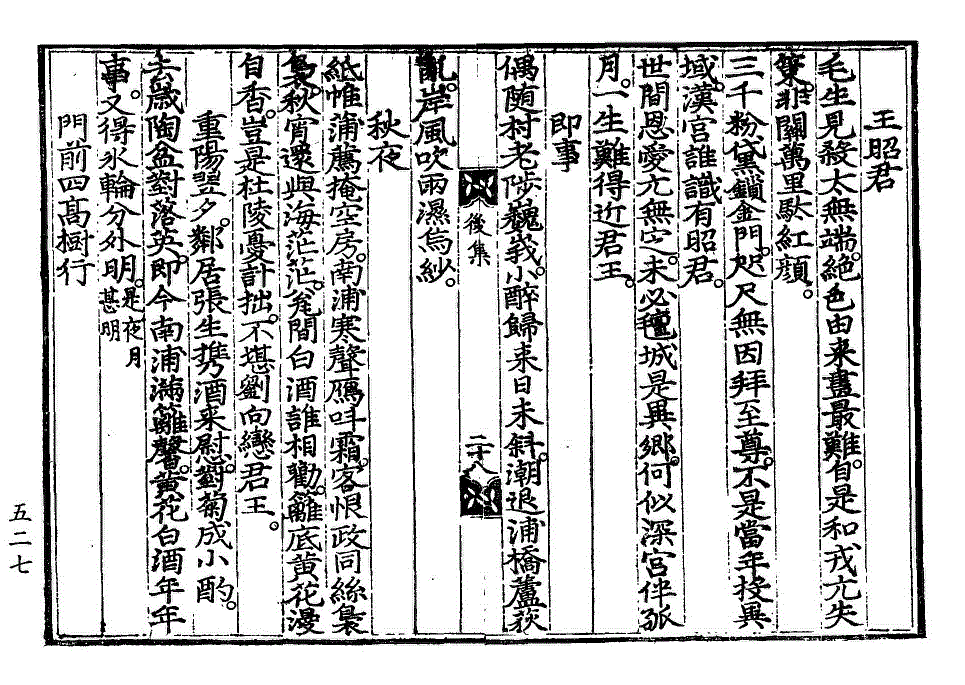 王昭君
毛生見殺太無端。絶色由来畫最難。自是和戎亢失
策。非關萬里馱紅顔。
三千粉黛鎖金門。咫尺無因拜至尊。不是當年投異
域。漢宮誰識有昭君。
世間恩愛亢無定。未必氊城是異郷。何似深宮伴孤
月。一生難得近君王。
即事
偶随村老陟巍峩。小醉歸来日未斜。潮退浦橋蘆荻
亂。岸風吹雨濕烏紗。
後集
二十八
秋夜
紙帷蒲薦掩空房。南浦寒聲鴈呌霜。客恨政同絲裊
裊。秋宵還與海茫茫。瓮間白酒誰相勸。籬底黄花漫
自香。豈是杜陵憂計拙。不堪劉向戀君王。
重陽翌夕。鄰居張生携酒来慰。對菊成小酌。
去歲陶盆對落英。即今南浦滿籬馨。黄花白酒年年
事。又得氷輪分外明。是夜月甚明
門前四髙樹行
五二七